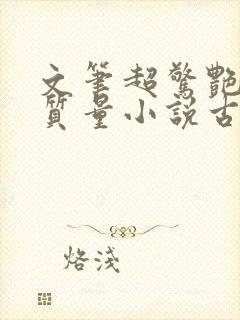 文筆超驚艷
質量小說古
烙淺